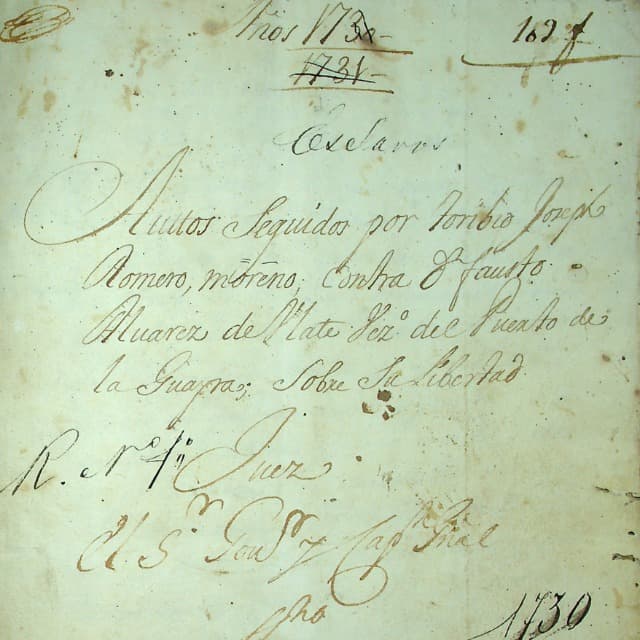 Años 1730
1731
162 f
Esclavos
Auttos Seguidos por Toribio Joseph
Romero, moreno, contra Dn fausto
Aluarez de Vlate Vezo del Puerto de
la Guayra; Sobre Su Libertad
R. No 1o Juez
El Sr Gour y Capn Gñal
1730